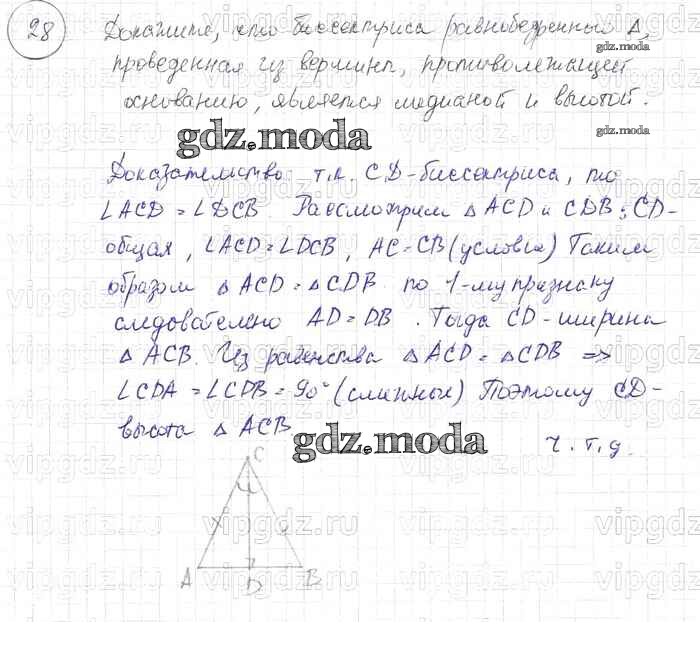 28 Докажите, что биссектриса равнобедренный Δ,
проведенная из вершины, противолежащей
основанию, является медианой и высотой.
gdz.moda
gdz.moda
gdz.moda
Доказательство т.к. CD-биссектриса, то
∠ACD = ∠DCB. Рассмотрим Δ ACD и CDB: CD-
общая, ∠ACD = ∠DCB, AC = CB (условие) Таким
образом Δ ACD = Δ CDB по 1-му признаку
следовательно AD = DB. Тогда CD-ширина
Δ ACB. Из равенства Δ ACD = Δ CDB =>
∠CDA = ∠CDB = 90° (смежные) Поэтому CD-
высота Δ ACB.
gdz.moda
ч.т.д.
gdz.moda
C
A D B
vipgdz.ru